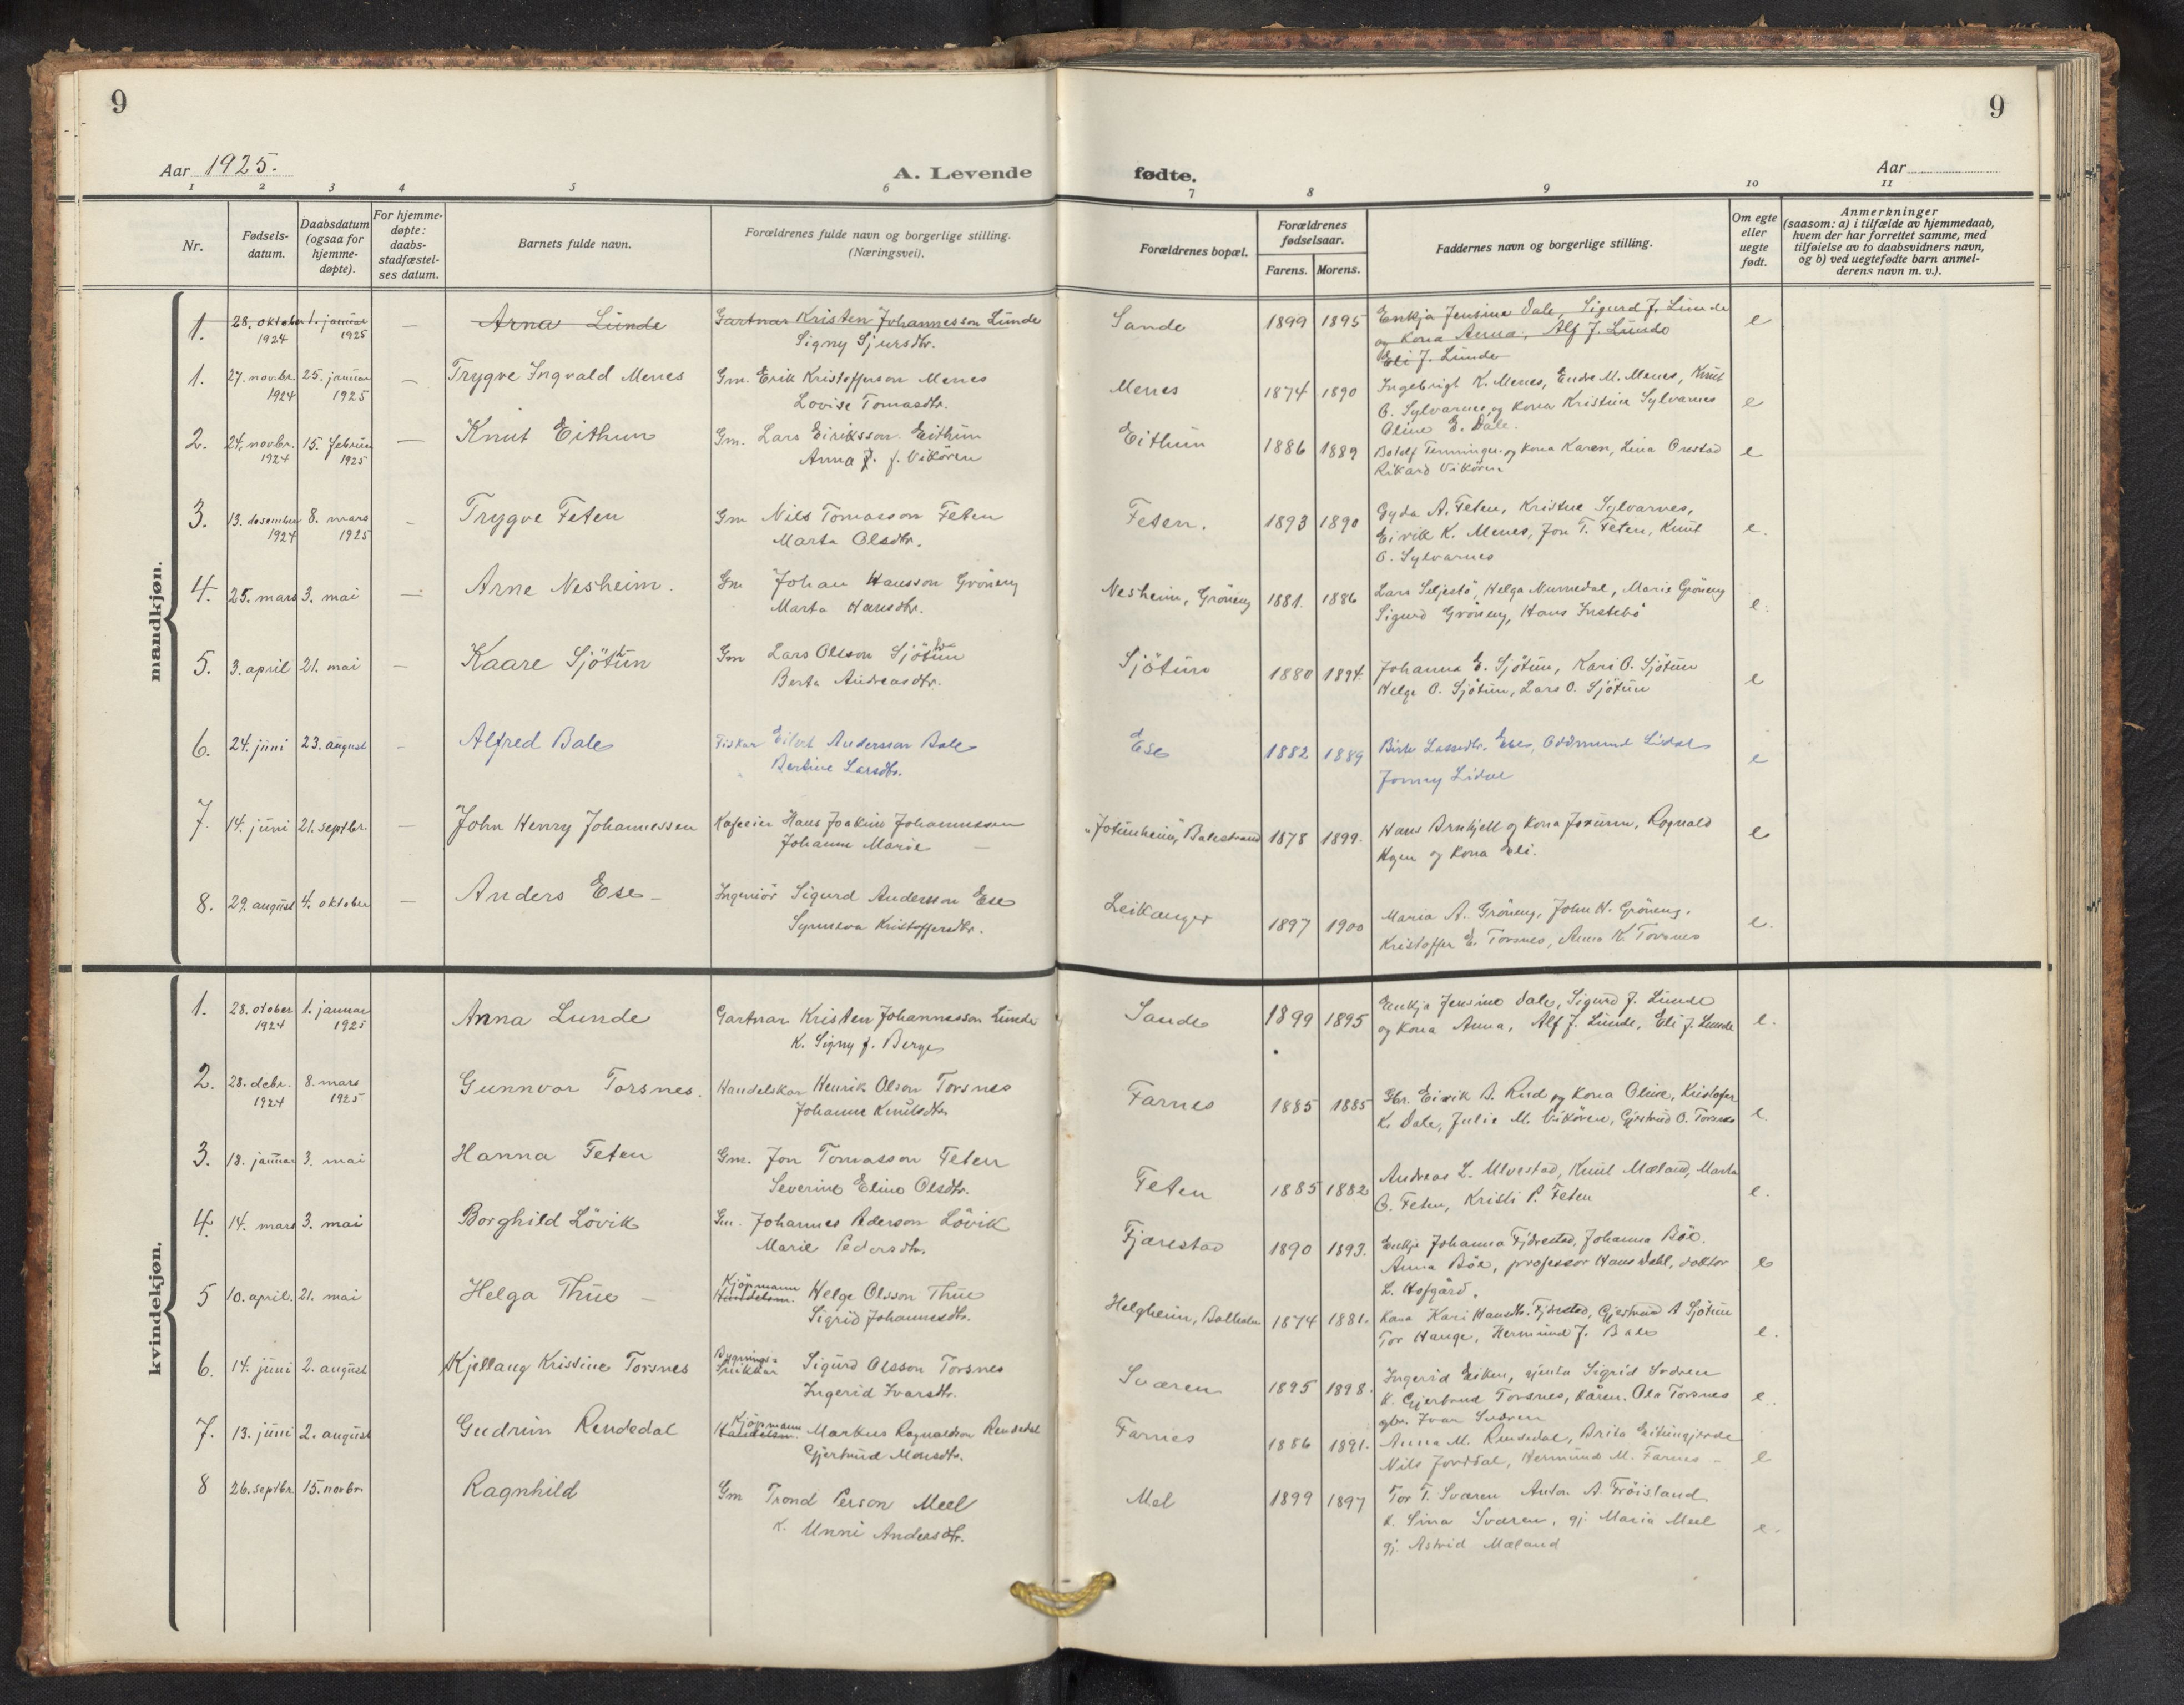 9
9
Aar 1925.
A. Levende
fødte.
Aar
1 2 3 4 5 6 7 8 9 10 11
Nr.
Fødsels-
datum.
Daabsdatum
(ogsaa for
hjemme-
døpte).
For hjemme-
døpte:
daabs-
stadfæstel-
ses datum.
Barnets fulde navn.
Forældrenes fulde navn og borgerlige stilling.
(Næringsvei).
Forældrenes bopæl.
Forældrenes
fødselsaar.
Farens. Morens.
Faddernes navn og borgerlige stilling.
Om egte
eller
uegte
født.
Anmerkninger
(saasom: a) i tilfælde av hjemmedaab,
hvem der har forrettet samme, med
tilføielse av to daabsvidners navn,
og b) ved uegtefødte barn anmel-
derens navn m. v.).
mandkjøn.
1. 28. oktober 1. januar — Arna Lunde Gartnar Kristen Johannesson Lunde Sande 1899 1895 Enkja Jensine Dale, Sigurd J. Lunde e
1924 1925 Signy Sjursdtr. og kona Anna, Alf J. Lunde
Eli J. Lunde
1. 27. novbr. 25. januar — Trygve Ingvald Menes Gm. Erik Kristofferson Menes Menes 1874 1890 Ingebrigt K. Menes, Endre M. Menes, Knut
1924 1925 Lovise Tomasdtr. O. Sylvarnes og kona Kristine Sylvarnes e
Oline E. Dale.
2. 24. novbr. 15. februar — Knut Eithun Gm. Lars Eiriksson Eithun Eithun 1886 1889 Botolf Tenninger og kona Karen, Lina Orestad e
1924 1925 Anna J. f. Vikören Rikard Vikören
3. 13. desember 8. mars - Trygve Feten Gm Nils Tomasson Feten Feten. 1893 1890 Gyda A. Feten, Kristne Sylvarnes,
1924 1925 Marta Olsdtr. Eirik K. Menes, Jon T. Feten, Knut e.
O. Sylvarnes
4. 25. mars 3. mai — Arne Nesheim. Gm Johan Hansson Gröneng Nesheim, Gröneng 1881. 1886 Lars Seljestö, Helga Nummedal, Marie Gröneng
Marta Hansdtr. Sigurd Gröneng, Hans Instebö e.
5. 3. april 21. mai — Kaare Sjötun Gm Lars Olsson Sjötun Sjötun 1880 1894. Johanna E. Sjötun, Kari O. Sjötun
Berta Andreasdtr. Helge O. Sjötun, Lars O. Sjötun e
6. 24. juni 23. august - Alfred Bale Fiskar Eilert Andersson Bale Ese 1882 1889 Birte Lassedtr. Ese, Oddmund Lidal
Bertine Larsdtr. Jonny Lidal e
7. 14. juni 21. septbr. — John Henry Johannessen Kafeeier Hans Joakim Johannessen „Jotunheim", Balestrand 1878 1899. Hans Brnkjell og kona Jorunn, Rognald e
Johanne Marie — og kona Eli.
8. 29. august 4. oktober — Anders Ese - Ingeniör Sigurd Andersson Ese Leikanger 1897 1900 Maria A. Gröneng, John H. Gröneng, e.
Synneva Kristoffersdtr. Kristoffer E. Torsnes, Anna K. Torsnes
kvindekjøn.
1. 28. otober 1. januar Anna Lunde Gartnar Kristen Johannesson Lunde Sande 1899 1895 Enkja Jensine Dale, Sigurd J. Lunde
1924 1925 K. Signy f. Berge og kona Anna, Alf J. Lunde, Eli J. Lunde e.
2. 28. debr. 8. mars Gunnvor Torsnes. Handelskar Henrik Olson Torsnes Farnes 1885 1885 Gbr. Eirik B. Rud og kona Oline, Kristofer
1924 1925 Johanne Knutsdtr. K. Dale, Julie M. Vikören, Gjertrud O. Torsnes e.
3. 18. januar 3. mai Hanna Feten Gm. Jon Tomasson Feten Feten 1885 1882 Andreas L. Ulvestad, Knut Mæland, Marta
Severine Eline Olsdtr. O. Feten, Kristi P. Feten e.
4. 14. mars 3. mai Borghild Lövik Gm. Johannes Pederson Lövik Fjærestad 1890 1893. Enkje Johanna Fjærestad, Johanna Böe.
Marie Pedersdtr. Anna Böe, professor Hans Dahl, doktor e
L. Hofgård.
5 10. april. 21. mai Helga Thue — Kjöpmann Handelsm. Helge Olsson Thue Helgheim, Balholm 1874 1881. Kona Kari Hansdtr. Fjærestad, Gjertrud A Sjötun
Sigrid Johannesdtr. Tor Hauge, Hermund J. Bale e.
6. 14. juni 2. august Kjellaug Kristine Torsnes Bygnings- Snikkar Sigurd Olsson Torsnes Sværen 1895 1898. Ingerid Eiken, gjenta Sigrid Sværen
Ingerid Ivarsdtr. K. Gjertrud Torsnes, Kåren. Ola Torsnes e.
gbr. Ivar Sværen
7. 13. juni 2. august Gudrun Rendedal Kjöpmann Handelsm. Markus Ragnaldson Rendedal Farnes 1886 1891. Anna M. Rendedal, Brita Eitungjerde
Gjertrud Monsdtr. Nils Jordal, Hermund M. Farnes - e
8 26. septbr. 15. novbr. Ragnhild Gm Trond Person Meel Mel 1899 1897 Tor T. Sværen Anton A. Fröisland
K. Unni Andersdtr. K. Sina Sværen, gj. Maria Meel e.
gj. Astrid Mæland